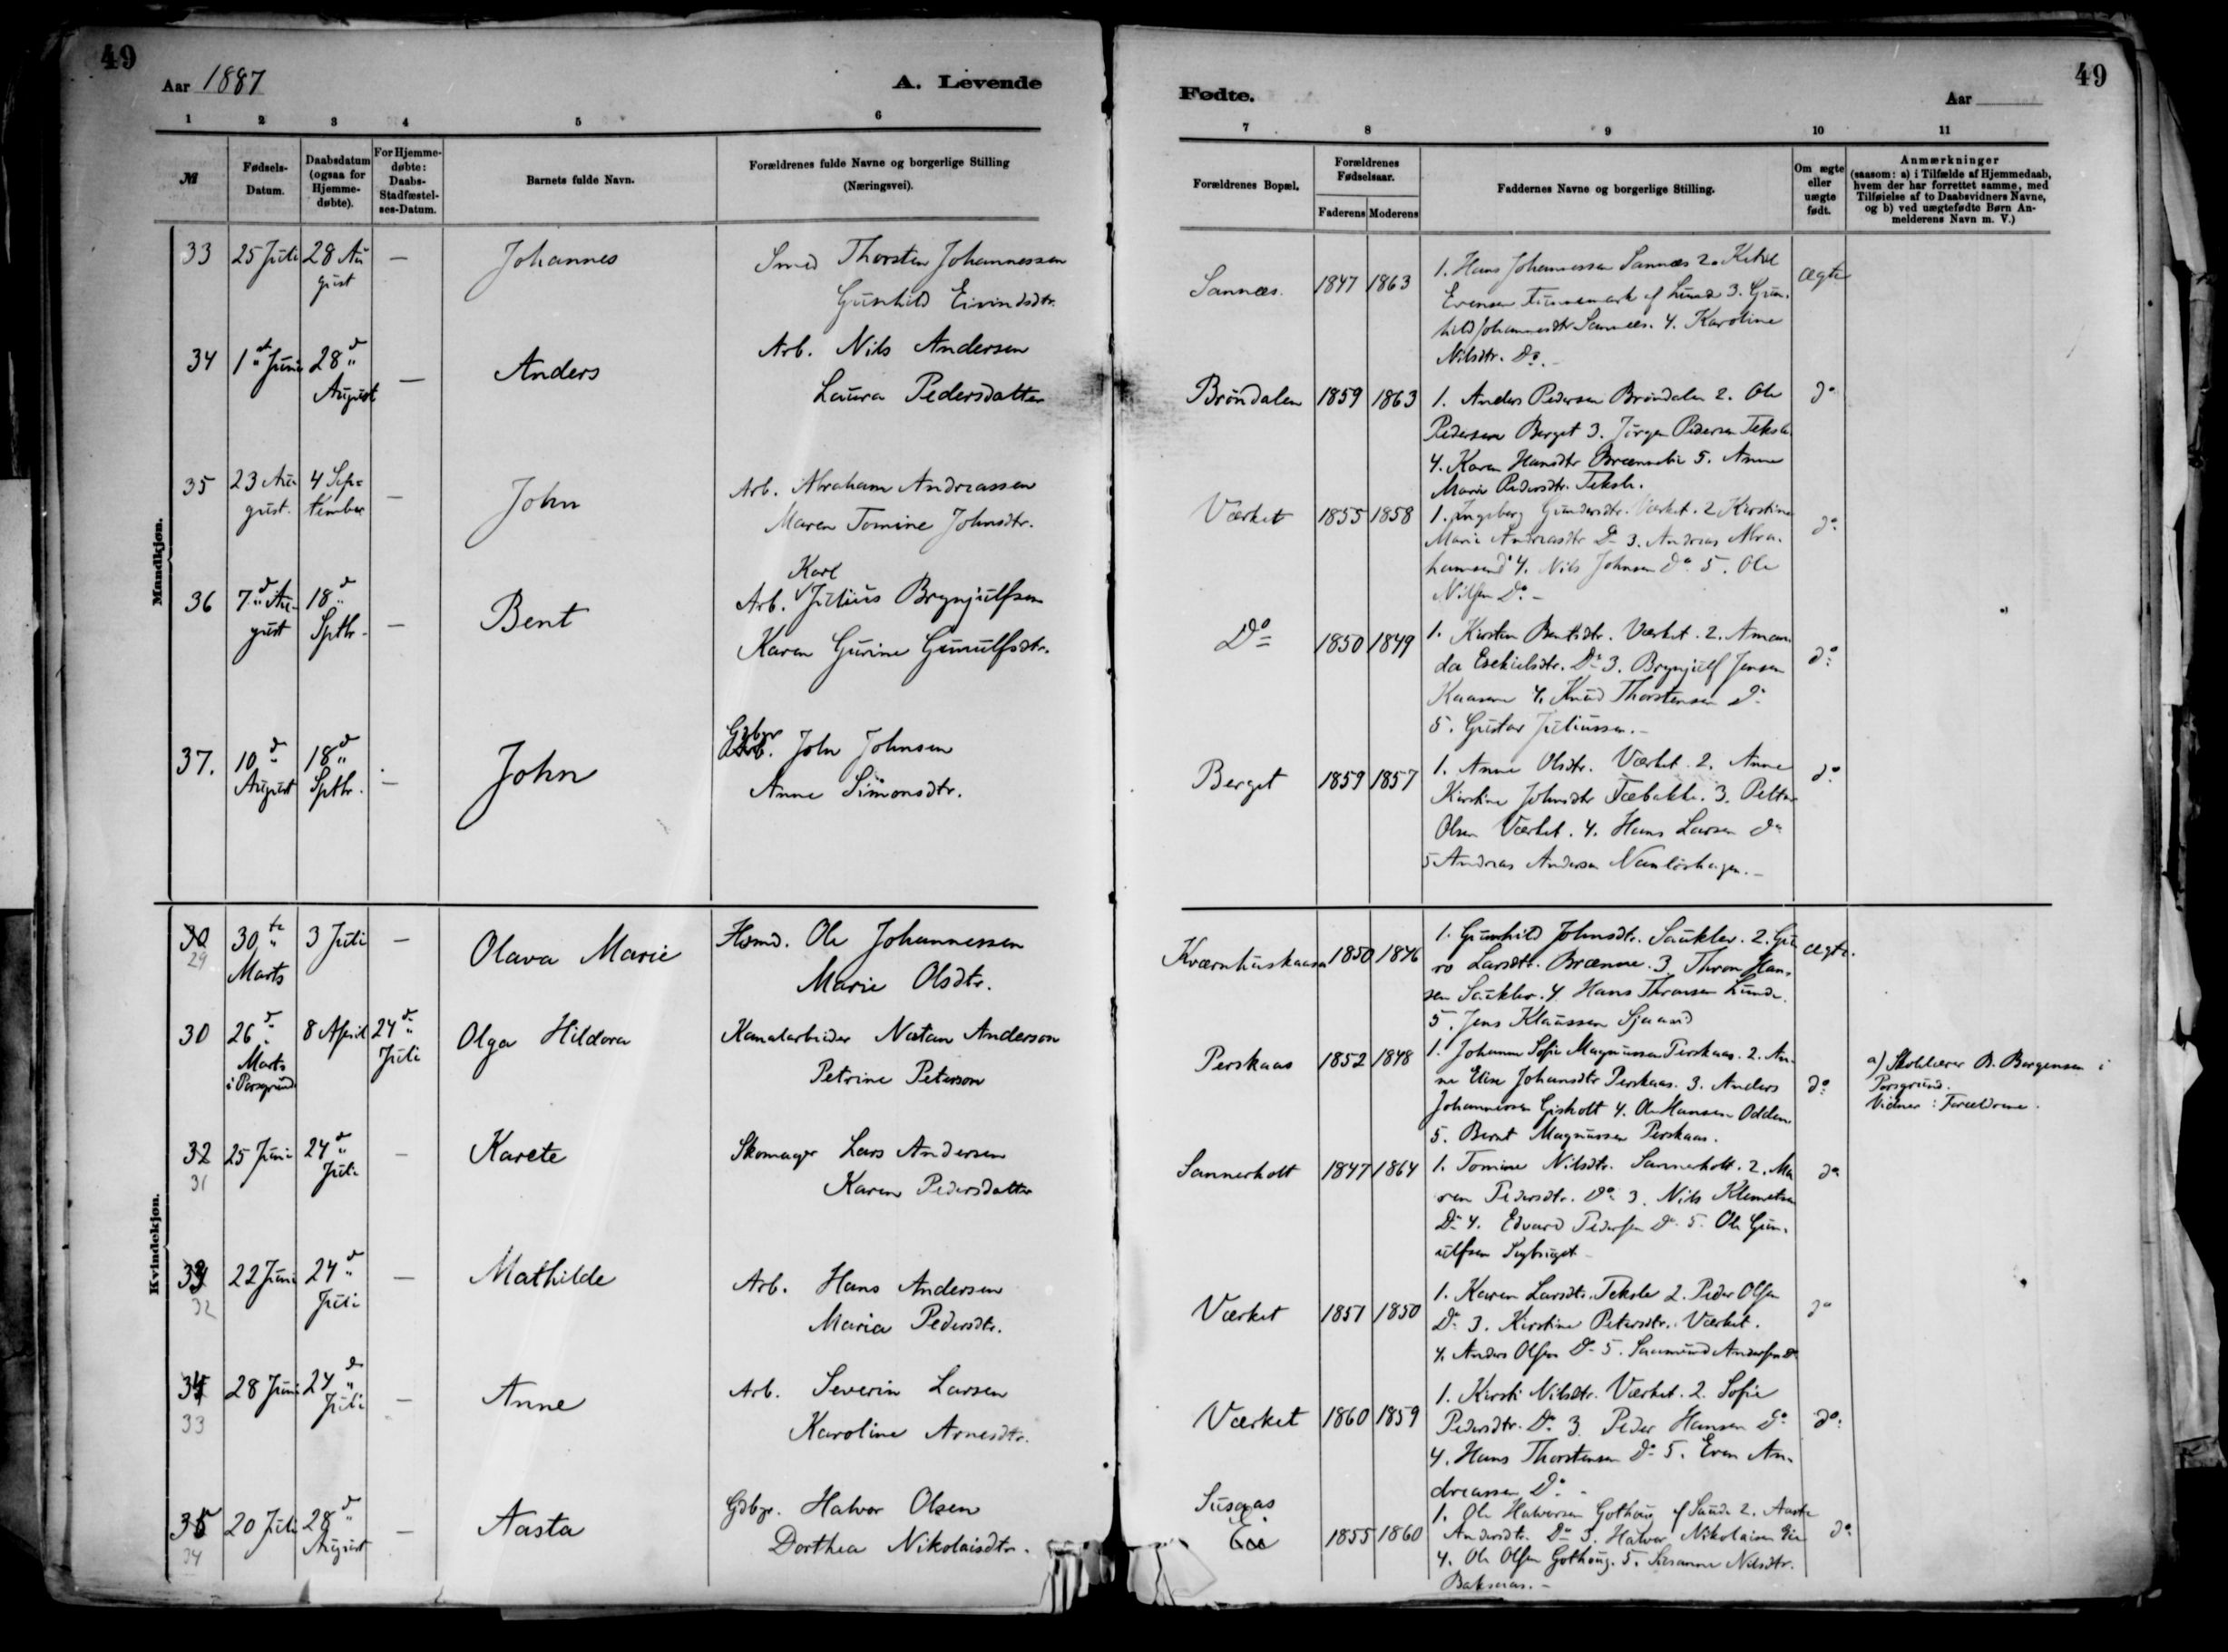 49
Aar 1887
A. Levende
1 2 3 4 5 6
№
Fødsels-Datum.
Daabsdatum (ogsaa for Hjemme-døbte).
For Hjemme-døbte: Daabs-Stadfæstel-ses-Datum.
Barnets fulde Navn.
Forældrenes fulde Navne og borgerlige Stilling
(Næringsvei).
Mandkjøn.
33 25 Juli 28 Au gust — Johannes Smed Thorsten Johannessen
Gunhild Eivindsdtr.
34 1st Juni 28d August — Anders Arb. Nils Andersen
Laura Pedersdatter
35 23 Au gust. 4 Sep= tember — John Arb. Abraham Andreassen
Maren Tomine Johnsdtr.
36 7d Au- gust 18d Sptbr. — Bent Arb. Karl Julius Brynjulfsen
Karen Gurine Gunnulfsdtr.
37. 10d August 18d Sptbr. — John Gdbgr John Johnsen
Anne Simonsdtr.
Kvindekjøn.
30 29 30te Marts 3 Juli — Olava Marie Hsmd. Ole Johannessen
Marie Olsdtr.
30 26d Marts i Porsgrund 8 April 24d Juli Olga Hildora Kanalarbeider Natan Anderson
Petrine Peterson
32 31 25 Juni 24d Juli — Karete Skomager Lars Andersen
Karen Pedersdatter
33 32 22 Juni 24d Juli — Mathilde Arb. Hans Andersen
Maria Pedersdtr.
34 33 28 Juni 24d Juli — Anne Arb. Severin Larsen
Karoline Arnesdtr.
35 34 20 Juli 28d August — Aasta Gdbgr. Halvor Olsen
Dorthea Nikolaisdtr.
Fødte.
Aar
49
7 8 9 10 11
Forældrenes Bopæl.
Forældrenes Fødselsaar.
Faderens Moderens
Faddernes Navne og borgerlige Stilling.
Om ægte eller uægte født.
Anmærkninger
(saasom: a) i Tilfælde af Hjemmedaab,
hvem der har forrettet samme, med
Tilføielse af to Daabsvidners Navne,
og b) ved uægtefødte Børn An-
melderens Navn m. V.)
Sannæs. 1847 1863 1. Hans Johannessen Sannæs 2. Ketil
Evensen af Lunde 3. Gun-
hild Johannesdtr Sannæs. 4. Karoline
Nilsdtr. Do. ægte
Brøndalen 1859 1863 1. Anders Pedersen Brøndalen 2. Ole
Pedersen Berget 3. Jørgen Pedersen
4. Karen Hansdtr 5. Anne
Marie Pedersdtr. do
Værket 1855 1858 1. Ingeborg Gundersdtr. Værket. 2 Kirstine
Marie Andreasdtr Do 3. Andreas Abra-
hamsen do 4. Nils Johnsen do 5. Ole
Nilsen Do. do
Do 1850 1849 1. Kirsten Bentsdtr. Værket. 2. Aman-
da Esekielsdtr. Do 3. Brynjulf Jensen
Kaasene 4. Knud Thorstensen do
5. Gustav Juliussen. do
Berget 1859 1857 1. Anne Olsdtr. Værket. 2. Anne
Kirstine Johnsdtr 3. Petter
Olsen Værket. 4. Hans Larsen do
5 Andreas Andersen do
Kværnhuskaasa 1850 1846 1. Gunhild Johnsdtr. Saukler. 2. Gu-
ro Larsdtr. Brænne. 3. Thron Han-
sen Saukler. 4. Hans Thronsen Lunde.
5. Jens Klaussen Sjaavid ægte.
Perskaas 1852 1848 1. Johanne Sofie Magnussen Perskaas. 2. An-
ne Elise Johansdtr Perskaas. 3. Anders
Johannessen Gisholt 4. Ole Hansen Odden
5. Bernt Magnussen Perskaas. do
a) Skolelærer B. Borgensen i
Porsgrund.
Vidner: Forældrene.
Sannerholt 1847 1864 1. Tomine Nilsdtr. Sannerholt. 2. Ma
ren Pedersdtr. do 3. Nils Klemetsen
Do 4. Edvard Pedersen Do 5. Ole Gun-
ulfsen do
Værket 1851 1850 1. Karen Larsdtr. 2. Peder Olsen
Do 3. Kirstine Petersdtr. Værket.
4. Anders Olsen Do 5. Saamund Andersen Do do
Værket 1860 1859 1. Kirsti Nilsdtr. Værket. 2. Sofie
Pedersdtr. Do 3. Peder Hansen do
4. Hans Thorstensen Do 5. Even An-
dreassen Do. do
Susaas 1855 1860 1. Ole Halvorsen Gothaug af Saude 2. Aaste
Andersdtr. Do 3. Halvor Nikolaisen
4. Ole Olsen Gothaug. 5. Susanne Nilsdtr. do